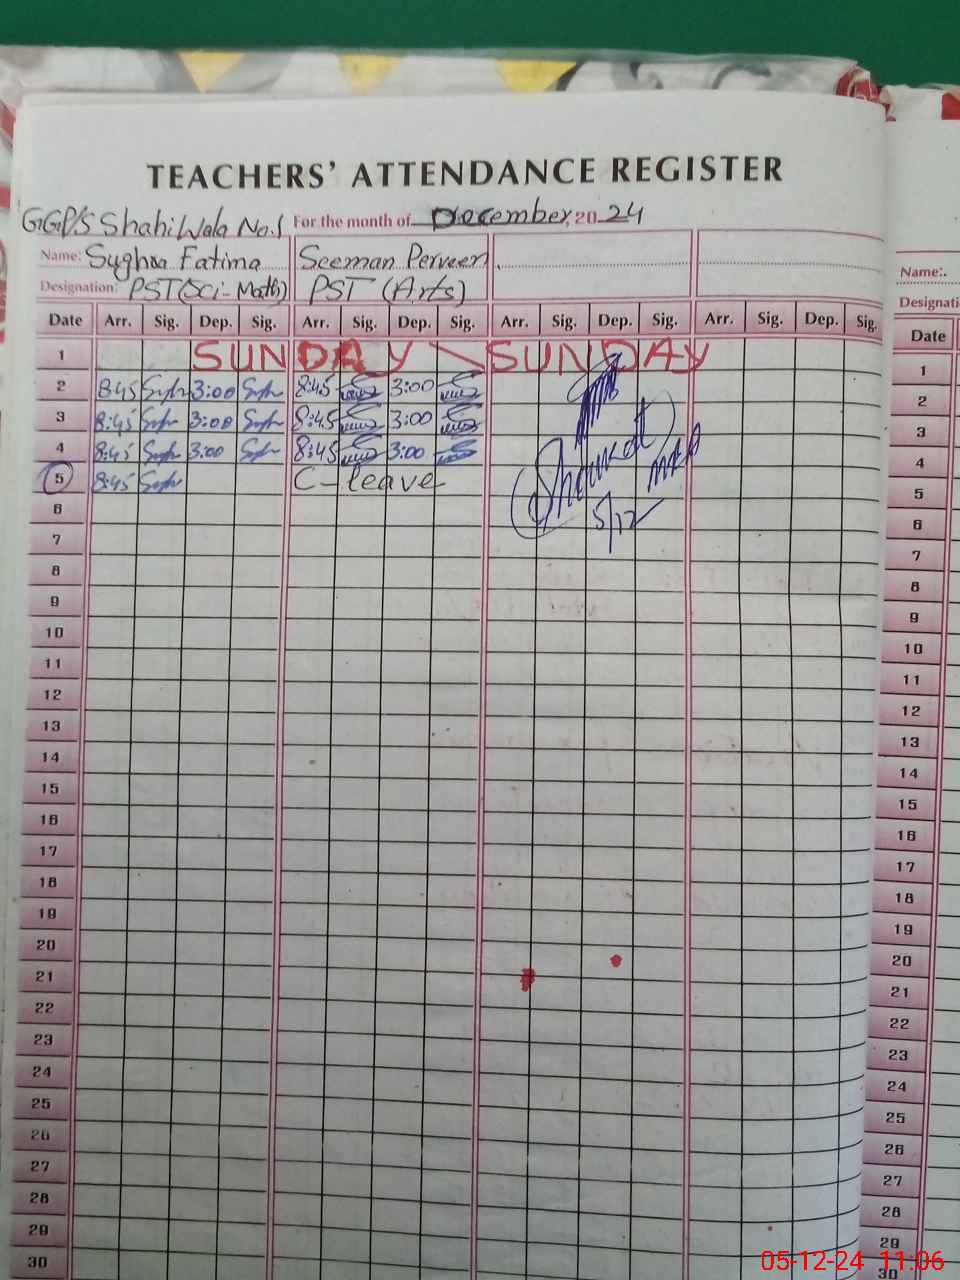 TEACHERS' ATTENDANCE REGISTER
GGP/S ShahiWala No.1 For the month of December, 20 24
Name: Sughra Fatima Seeman Perveen
Designation: PST(Sci-Math) PST (Arts)
Date Arr. Sig. Dep. Sig. Arr. Sig. Dep. Sig. Arr. Sig. Dep. Sig. Arr. Sig. Dep. Sig.
1 SUNDAY SUNDAY
2 8:45 3:00 8:45 3:00
3 8:45 3:00 8:45 3:00
4 8:45 3:00 8:45 3:00 Shoukat
5 8:45 C-leave 5/12
6
7
8
9
10
11
12
13
14
15
16
17
18
19
20
21
22
23
24
25
26
27
28
29
30
Name:.
Designati
Date
1
2
3
4
5
6
7
8
9
10
11
12
13
14
15
16
17
18
19
20
21
22
23
24
25
26
27
28
29
30
05-12-24 11:06